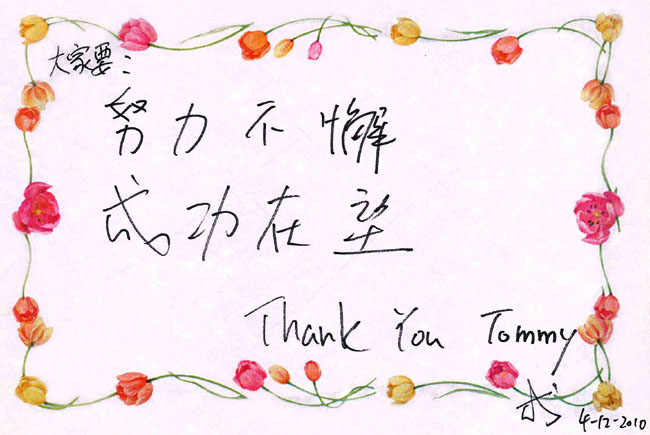 大家要：
努力不懈
成功在望
Thank You Tommy
4-12-2010